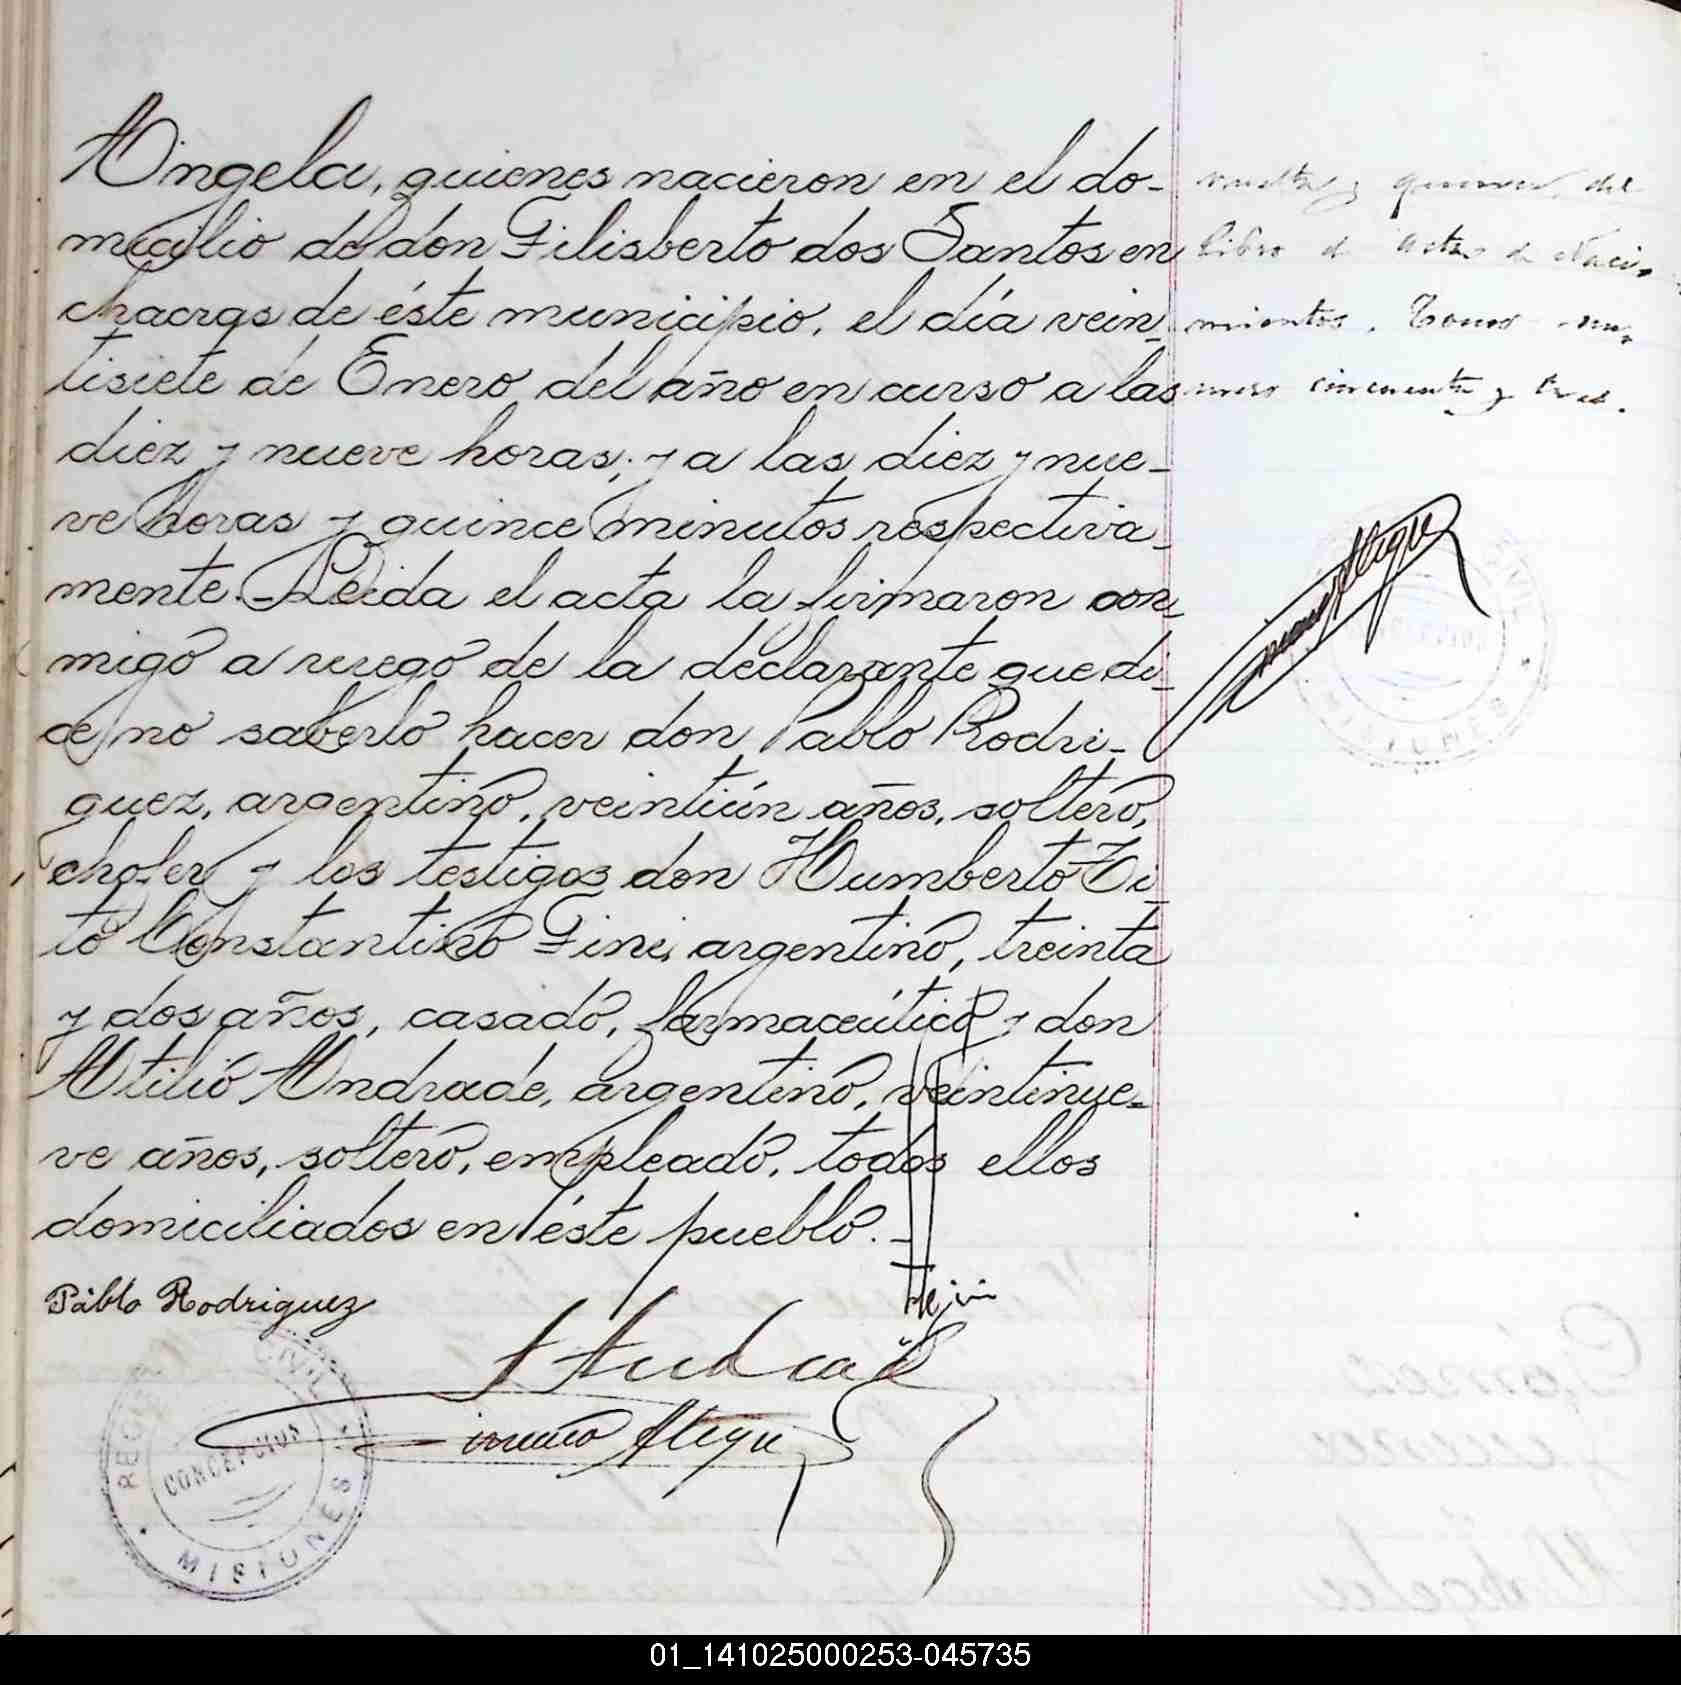 Angela, quienes nacieron en el do-
micilio de don Filisberto dos Santos en
chacras de éste municipio, el día vein-
tisiete de Enero del año en curso a las
diez y nueve horas; y a las diez y nue-
ve horas y quince minutos respectiva-
mente.- Leida el acta la firmaron con-
migo a ruego de la declarante que di-
ce no saberlo hacer don Pablo Rodri-
guez, argentino, veintiún años, soltero,
chofer y los testigos don Humberto Ti-
to Constantino Fini, argentino, treinta
y dos años, casado, farmaceútico y don
Atilio Andrade, argentino, veintinue-
ve años, soltero, empleado, todos ellos
domiciliados en éste pueblo.-
Pablo Rodriguez
A Andrade
REGISTRO CIVIL
CONCEPCION
MISIONES
vuelta y del
libro de actas de Naci-
mientos. Tomo nú-
mero cincuenta y tres.
CIVIL
MISIONES
01_141025000253-045735